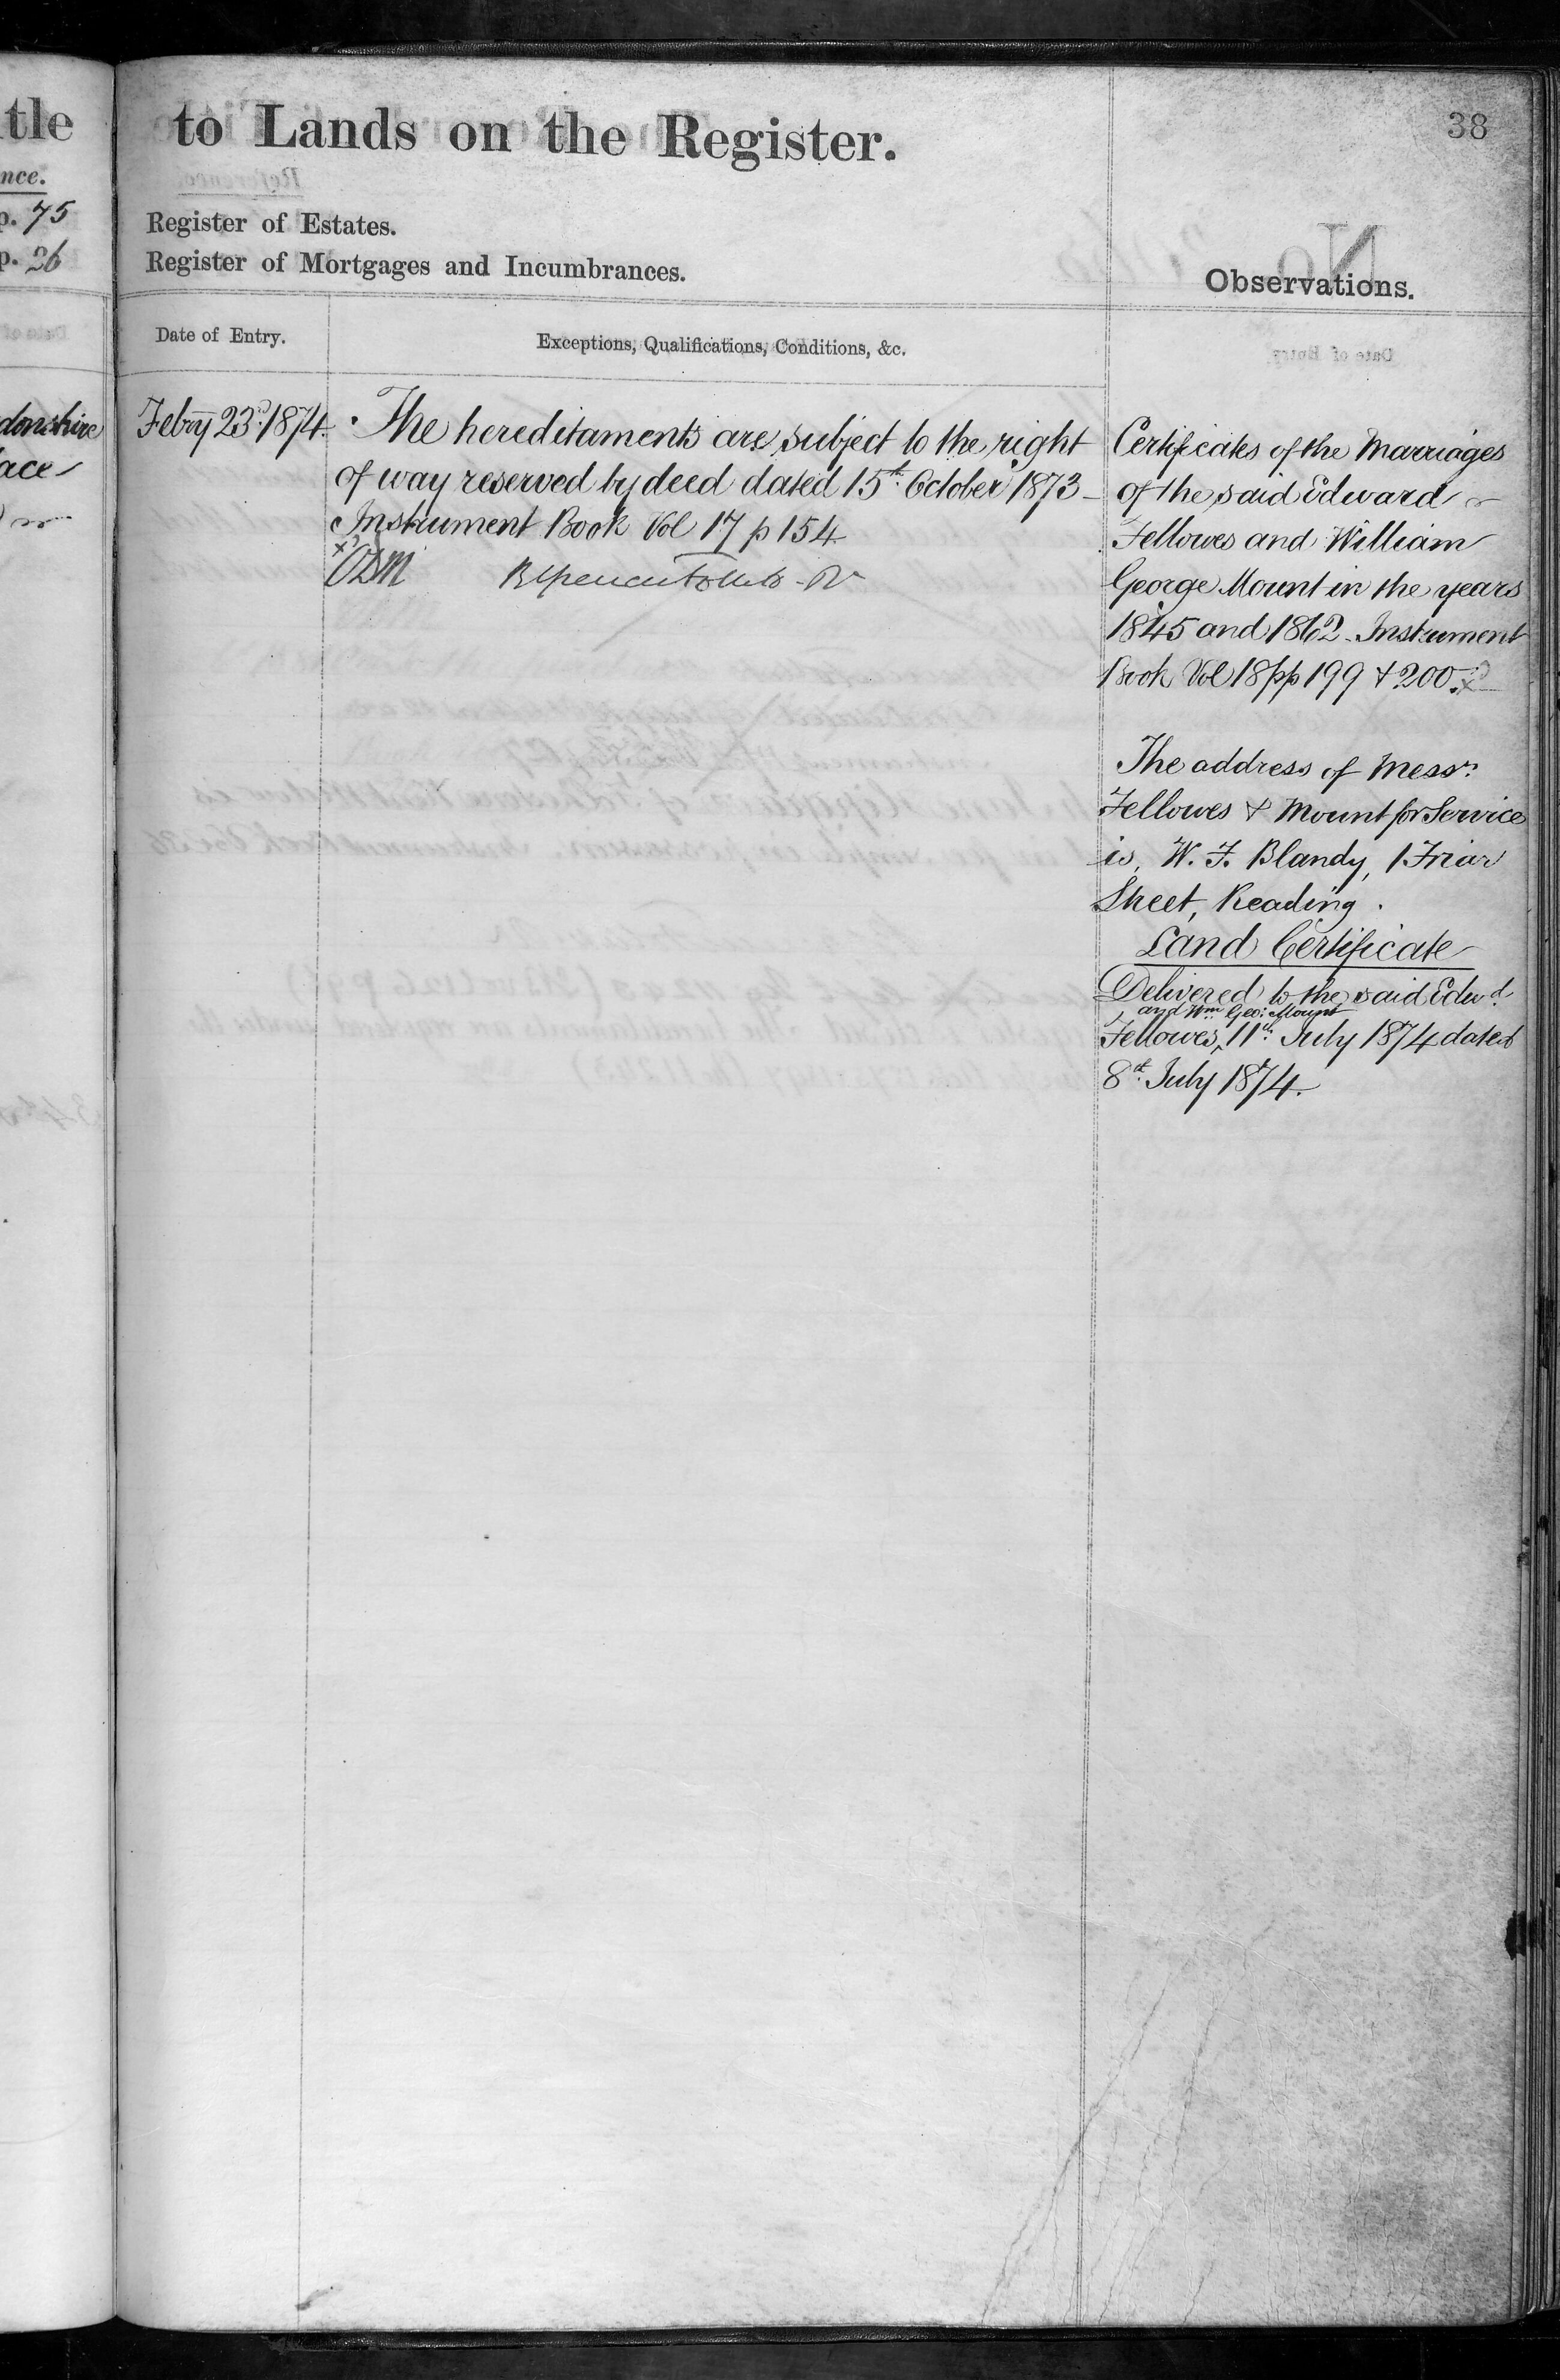 tle
nce.
p. 75
p. 26
donshire
ace
to Lands on the Register.
38
Register of Estates.
Register of Mortgages and Incumbrances.
Observations.
Date of Entry.
Exceptions, Qualifications, Conditions, &c.
Febry 23d. 1874.
The hereditaments are subject to the right
of way reserved by deed dated 15th October 1873
Instrument Book Vol 17 p 154
Certificates of the Marriages
of the said Edward
Fellowes and William
George Mount in the years
1845 and 1862. Instrument
Book Vol 18 pp 199 & 200.
The address of Messrs.
Fellowes & Mount for Service
is, W. F. Blandy, 1 Friar
Street, Reading.
Land Certificate
Delivered to the said Edwd.
and Wm Geo: Mount
Fellowes, 11th July 1874 dated
8th July 1874.